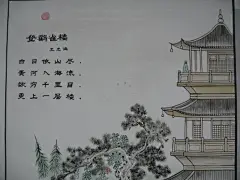 登鹳雀楼
王之涣
白日依山尽，
黄河入海流，
欲穷千里目，
更上一层楼。